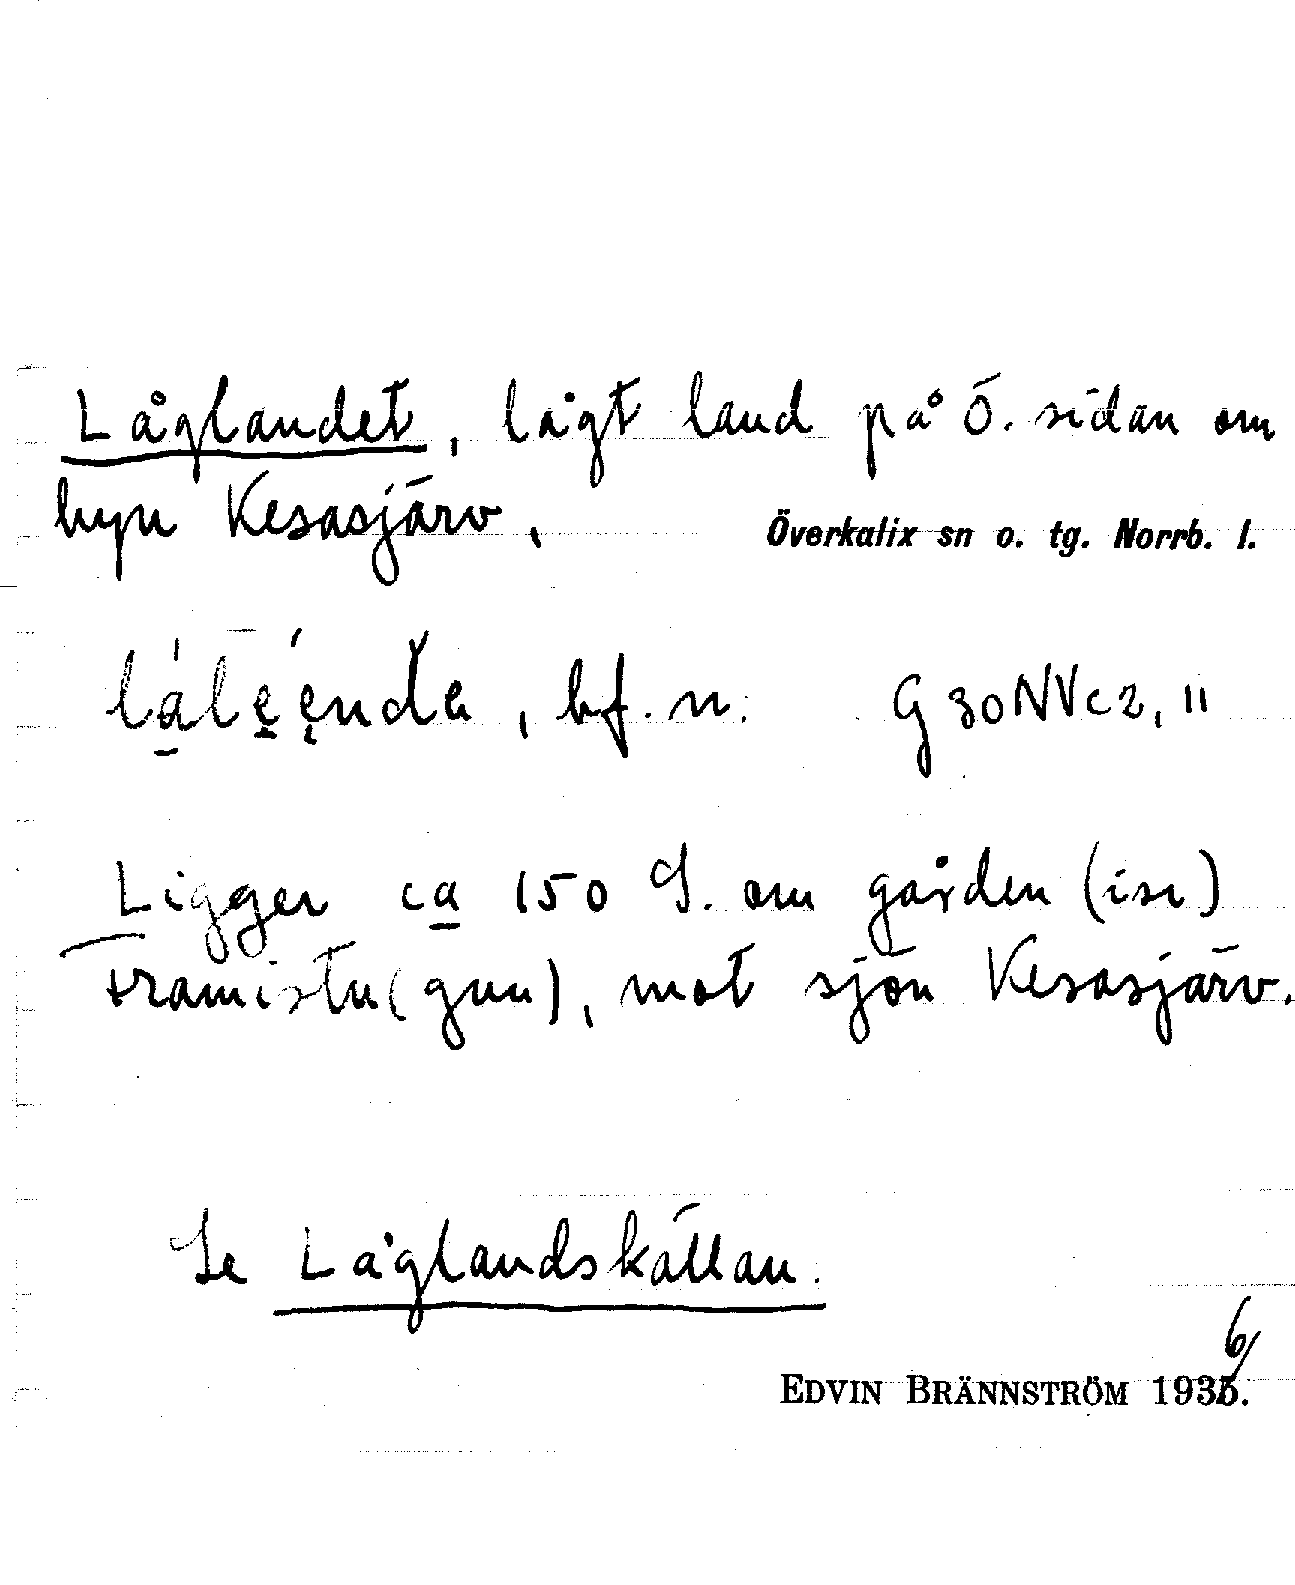 Låglandet, lågt land på Ö. sidan om
byn Kesasjärv,
Överkalix sn o. tg. Norrb. l.
bf. n. G 30 NV c 2, 11
Ligger ca 150 S. om gården (isr)
tramistu(gun), mot sjön Kesasjärv.
Se Låglandskällan.
6/
EDVIN BRÄNNSTRÖM 1935.